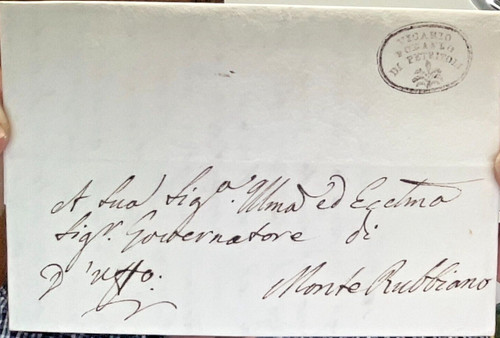 VICARIO
FORANEO
DI PETRITOLI
A Sua Sig.ª Illma ed Ecclma
Sigr. Governatore di
D'uffo. Monte Rubbiano